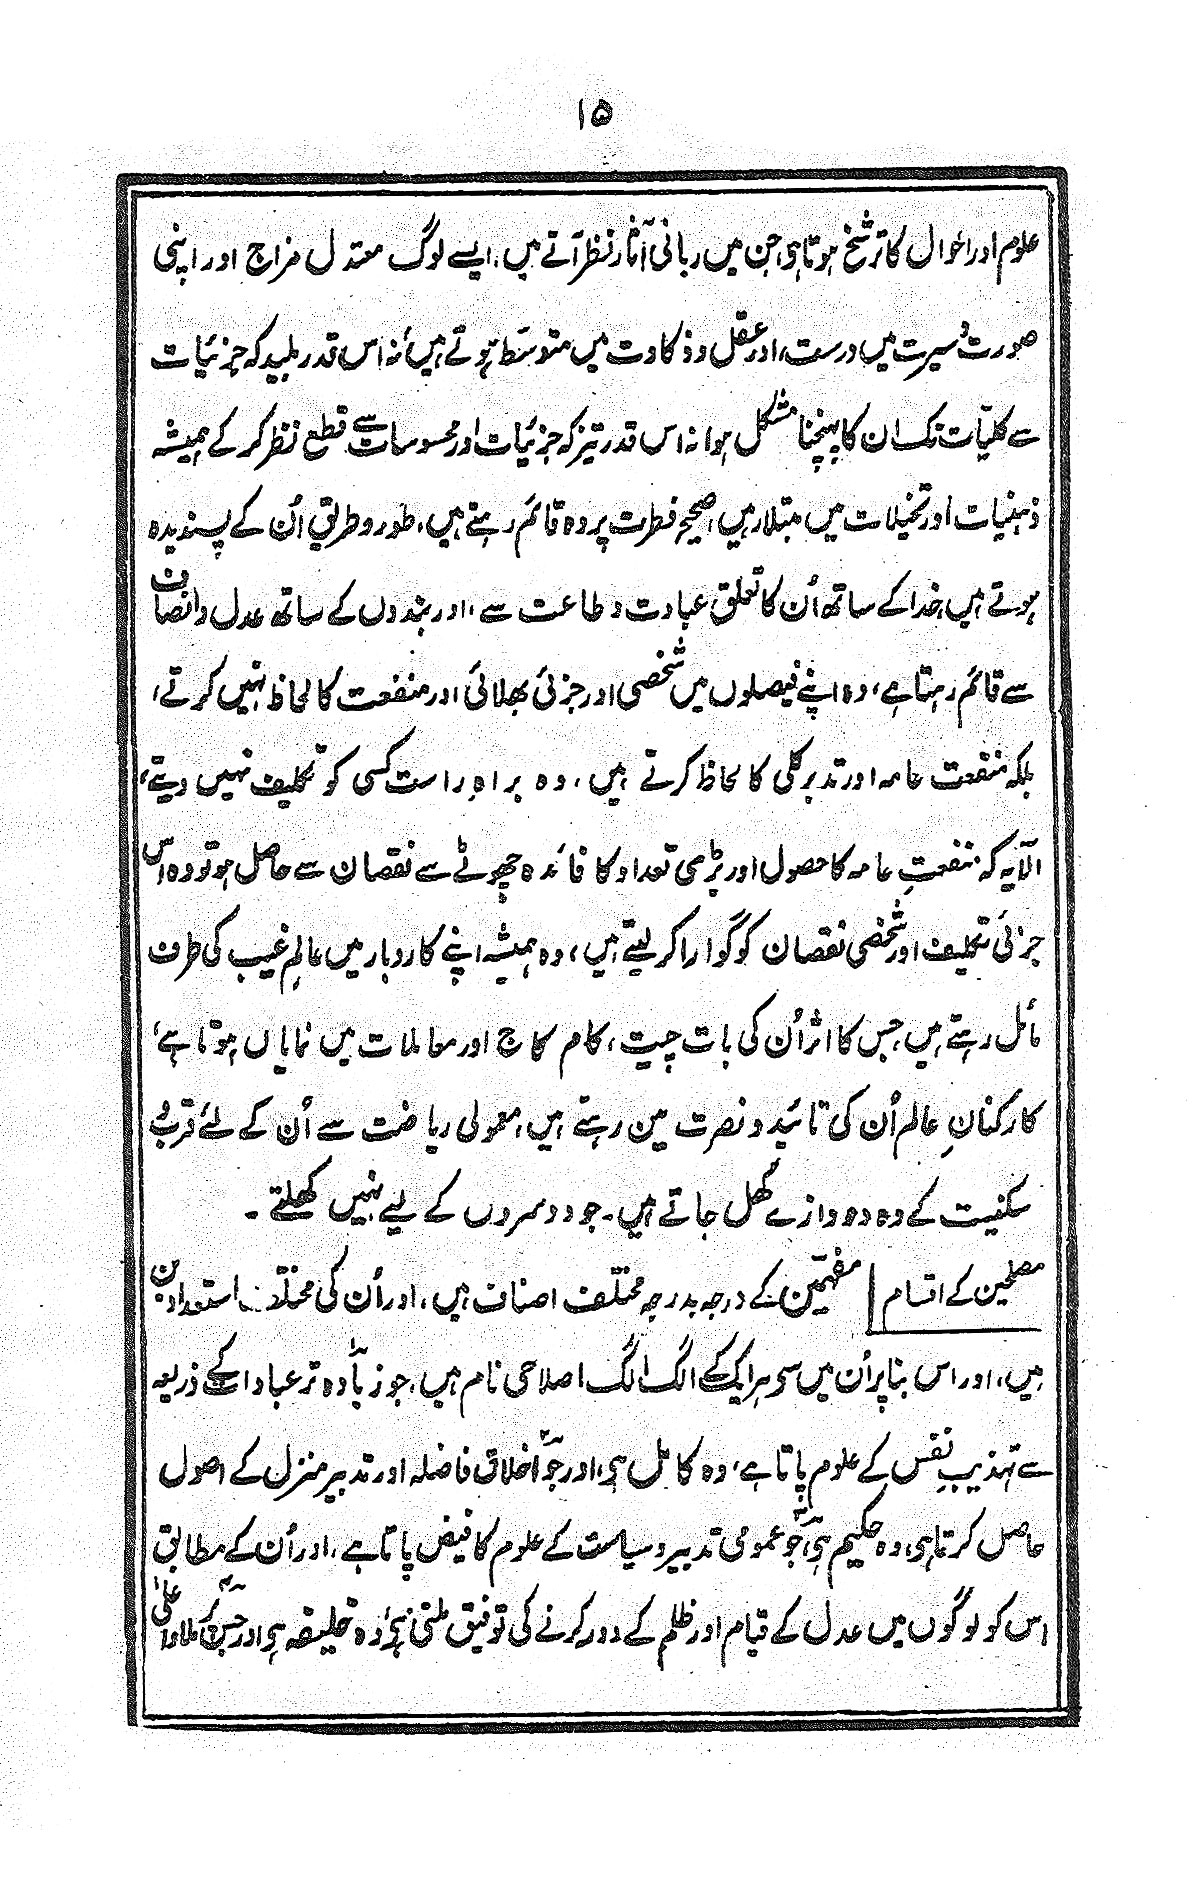 ۱۵
علوم اور احوال کا ترشح ہوتا ہی، جن میں ربانی آثار نظر آتے ہیں، ایسے لوگ معتدل مزاج اور اپنی
صورت و سیرت میں درست، اور عقل و ذکاوت میں متوسط ہوتے ہیں، نہ اس قدر بلید کہ جزئیات
سے کلیات تک ان کا پہنچنا مشکل ہو اور نہ اس قدر تیز کہ جزئیات اور محسوسات سے قطع نظر کر کے ہمیشہ
ذہنیات اور تخیلات میں مبتلا رہیں، صحیح فطرت پر وہ قائم رہتے ہیں، طور و طریق اُن کے پسندیدہ
ہوتے ہیں، خدا کے ساتھ اُن کا تعلق عبادت و طاعت سے، اور بندوں کے ساتھ عدل و انصاف
سے قائم رہتا ہے، وہ اپنے فیصلوں میں شخصی اور جزئی بھلائی اور منفعت کا لحاظ نہیں کرتے،
بلکہ منفعت عامہ اور تدبر کلی کا لحاظ کرتے ہیں، وہ براہِ راست کسی کو تکلیف نہیں دیتے،
الّا یہ کہ منفعتِ عامہ کا حصول اور بڑی تعداد کا فائدہ چھوٹے سے نقصان سے حاصل ہو تو وہ اس
جزئی تکلیف اور شخصی نقصان کو گوارا کر لیتے ہیں، وہ ہمیشہ اپنے کاروبار میں عالمِ غیب کی طرف
مائل رہتے ہیں، جس کا اثر اُن کی بات چیت، کام کاج اور معاملات میں نمایاں ہوتا ہے،
کارکنانِ عالم اُن کی تائید و نصرت میں رہتے ہیں، معمولی ریاضت سے اُن کے لئے قرب و
سکینت کے وہ دروازے کُھل جاتے ہیں۔ جو دوسروں کے لیے نہیں کُھلتے۔
مصلحین کے اقسام | مفہّمین کے درجہ بدرجہ مختلف اصناف ہیں، اور اُن کی مختلف استعدادیں
ہیں، اور اس بنا پر اُن میں سے ہر ایک کے الگ الگ اصلاحی نام ہیں، جو زیادہ تر عبادات کے ذریعہ
سے تہذیبِ نفس کے علوم پاتا ہے، وہ کامل ہی، اور جو اخلاق فاضلہ اور تدبیر منزل کے اصول
حاصل کرتا ہی، وہ حکیم ہی، جو عمومی تدبیر و سیاست کے علوم کا فیض پاتا ہے، اور اُن کے مطابق
اس کو لوگوں میں عدل کے قیام اور ظلم کے دور کرنے کی توفیق ملتی ہی، وہ خلیفہ ہی اور جس کو ملاء اعلیٰ